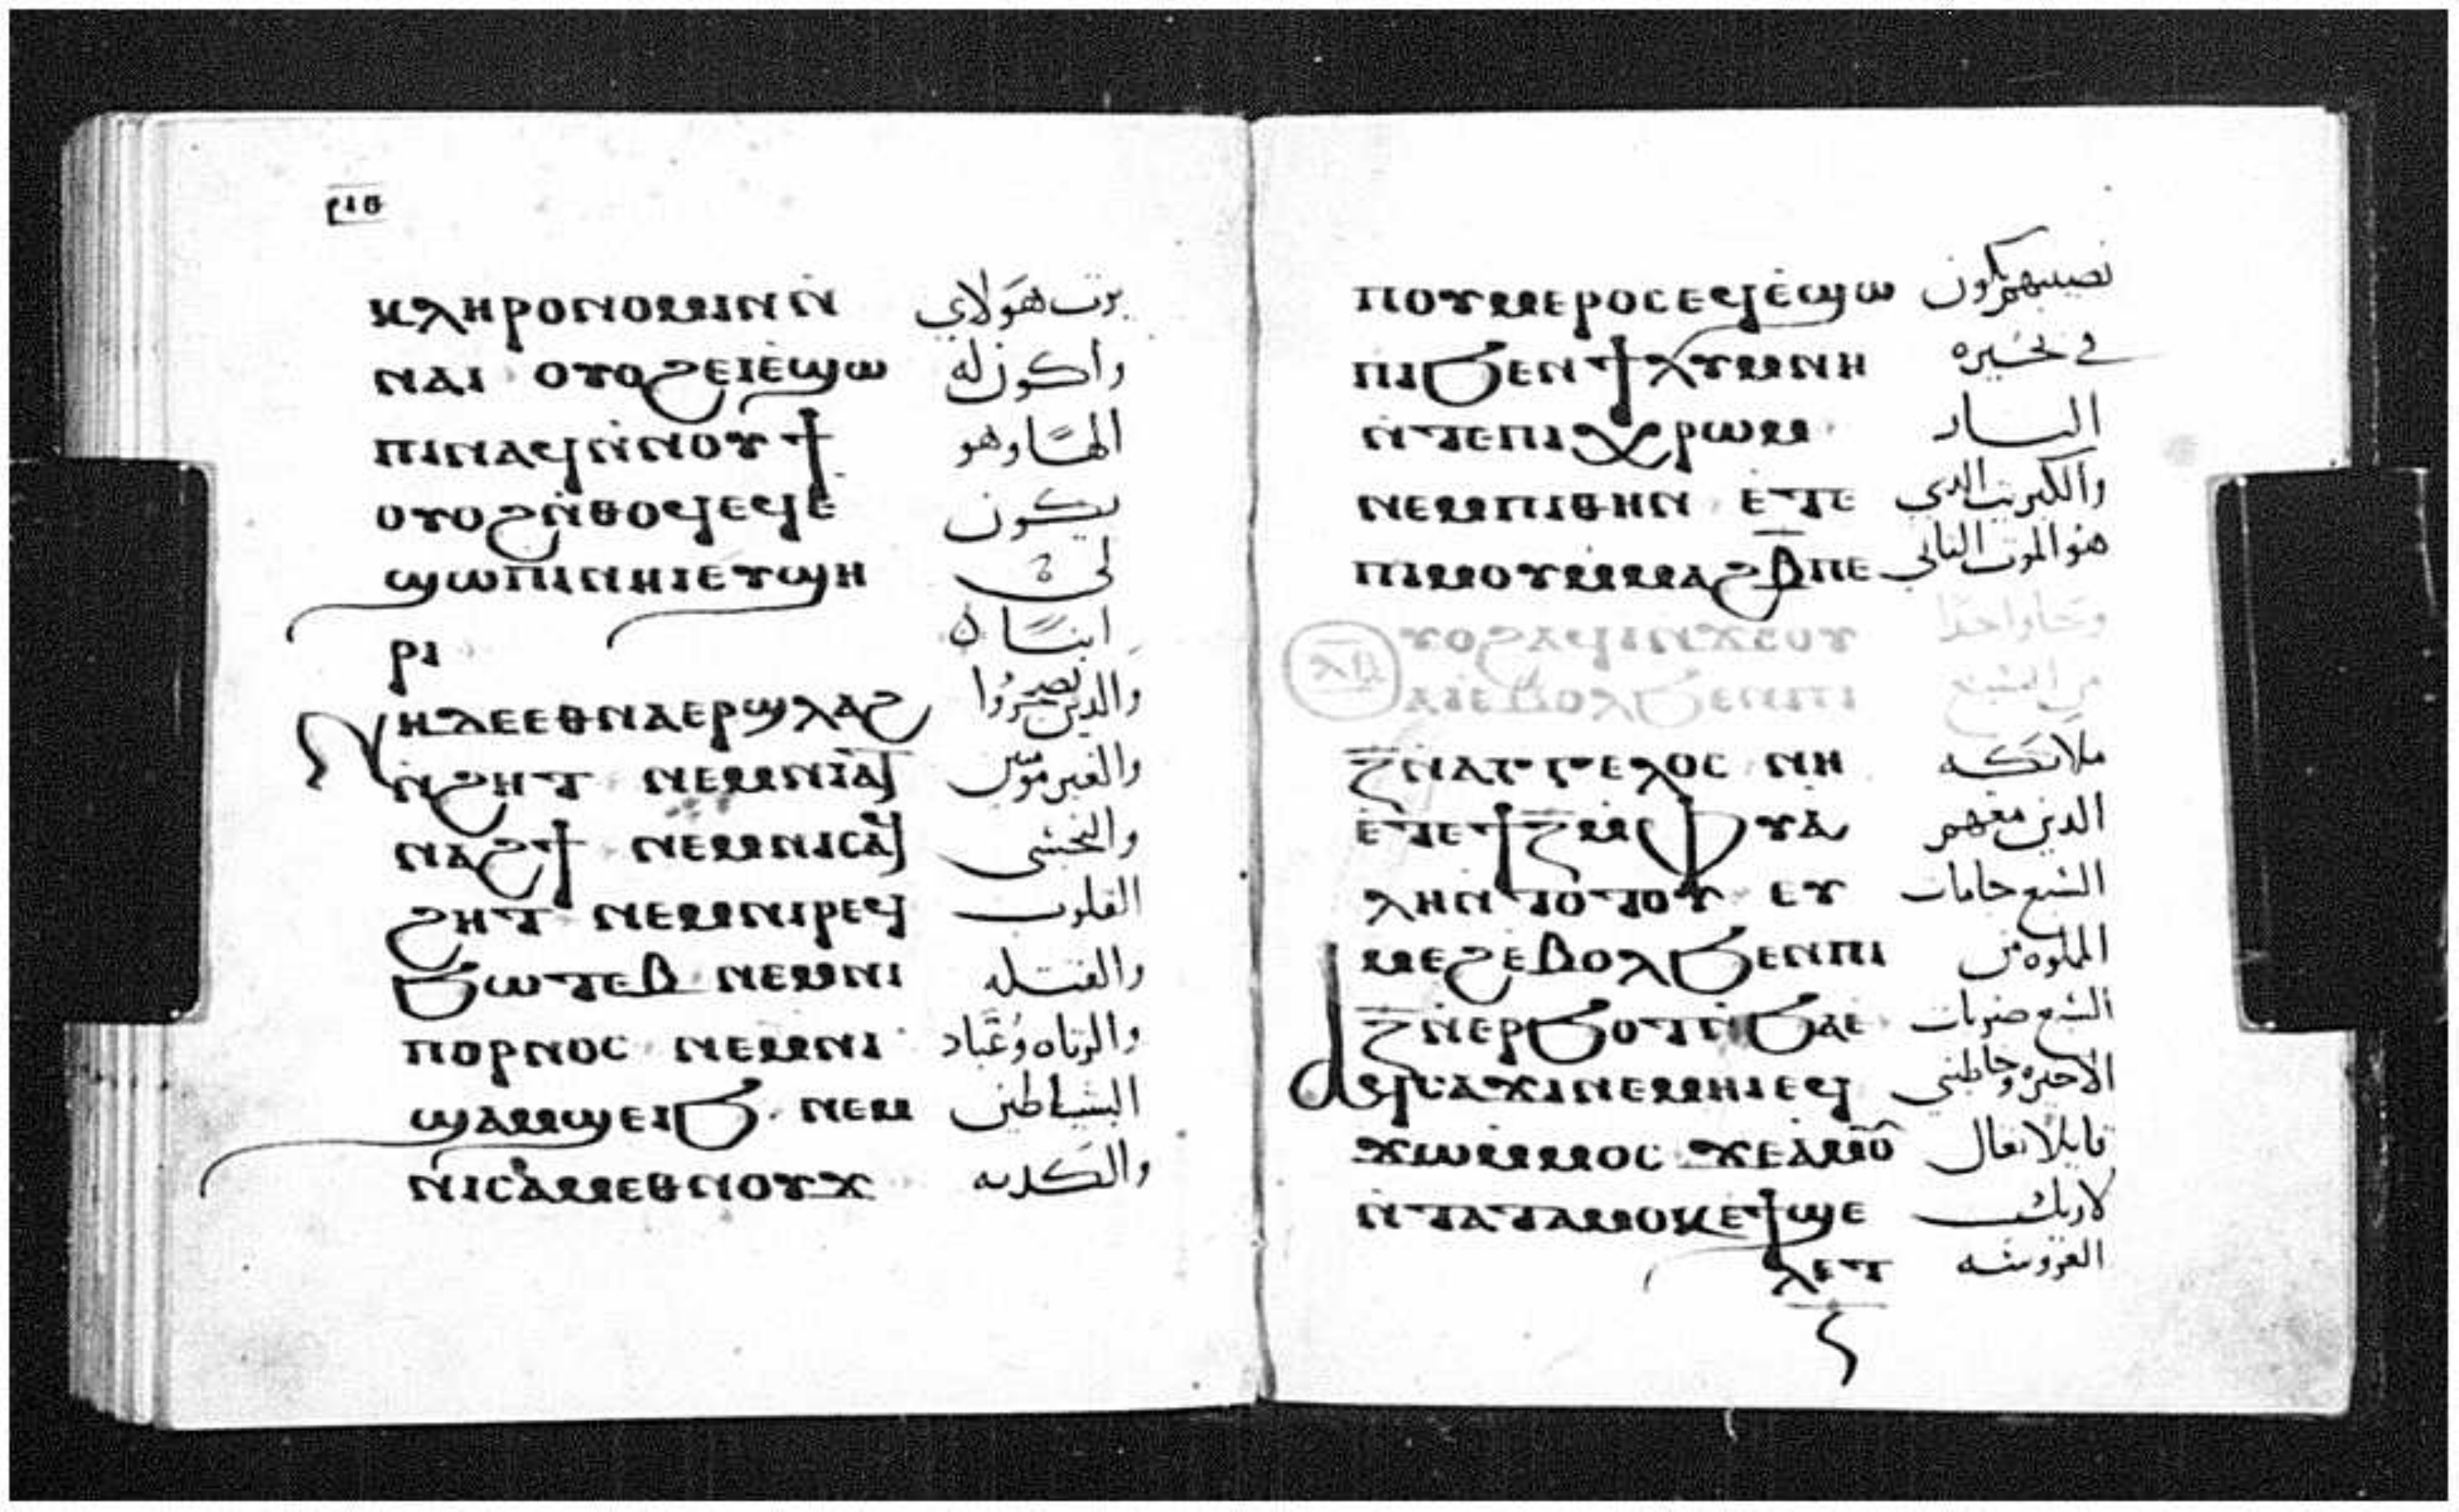 ⲣⲓⲑ
ⲕⲗⲏⲣⲟⲛⲟⲙⲓⲛ ⲛ̇ يرث هولاي
ⲛⲁⲓ ⲟⲩⲟϩ ⲉⲓⲉ̇ϣⲱ واكون له
ⲡⲓ ⲛⲁϥ ⲛ̇ⲛⲟⲩϯ الهًا وهو
ⲟⲩⲟϩ ⲛ̇ⲑⲟϥ ⲉϥⲉ̇ يكون
ϣⲱⲡⲓ ⲛⲏⲓ ⲉⲩϣⲏ لي
ⲣⲓ ابنًا
ⲛⲏ ⲇⲉ ⲉⲑⲛⲁⲉⲣϣⲗⲁϩ والذين
ⲛ̇ϩⲏⲧ ⲛⲉⲙ ⲛⲓⲁ̇ⲑ والغير مومنين
ⲛⲁϩϯ ⲛⲉⲙ ⲛⲓⲥⲁϥ والنجسي
ϩⲏⲧ ⲛⲉⲙ ⲛⲓⲣⲉϥ القلوب
ϧⲱⲧⲉⲃ ⲛⲉⲙ ⲛⲓ والقتله
ⲡⲟⲣⲛⲟⲥ ⲛⲉⲙ ⲛⲓ والزناه وعُبَّاد
ϣⲁⲙϣⲉ ⲓϧ ⲛⲉⲙ الشياطين
ⲛⲓⲥⲁⲙⲉⲑⲛⲟⲩϫ والكدبه
ⲡⲟⲩⲙⲉⲣⲟⲥ ⲉϥⲉ̇ϣⲱ نصيبهم يكون
ⲡⲓ ϧⲉⲛ ϯⲗⲩⲙⲛⲏ في بحيره
ⲛ̇ⲧⲉ ⲡⲓⲭⲣⲱⲙ النار
ⲛⲉⲙ ⲡⲓⲑⲏⲛ ⲉ̇ⲧⲉ والكبريت الدي
ⲡⲓⲙⲟⲩ ⲙ̇ⲙⲁϩⲃ̅ ⲡⲉ هو الموت التاني
ⲟⲩⲟϩ ⲁϥⲓ ⲛ̇ϫⲉ ⲟⲩ وجا واحدًا
ⲁⲓ ⲉⲃⲟⲗ ϧⲉⲛ ⲡⲓ من السبع
ⲍ̅ ⲛ̇ⲁⲅⲅⲉⲗⲟⲥ ⲛⲏ ملايكه
ⲉ̇ⲧⲉ ϯⲍ̅ ⲙ̇ⲫⲩⲁ̇ الدين معهم
ⲗⲏ ⲛ̇ⲧⲟⲧⲟⲩ ⲉⲩ السبع جامات
ⲙⲉϩ ⲉ̇ⲃⲟⲗ ϧⲉⲛ ⲡⲓ المملوه من
ⲍ̅ ⲛ̇ⲉⲣϧⲟⲧ ⲛ̇ϧⲁⲉ̇ السبع ضربات
ⲁϥⲥⲁϫⲓ ⲛⲉⲙⲏⲓ ⲉϥ الاخيره وخاطبني
ϫⲱ ⲙ̇ⲙⲟⲥ ϫⲉ ⲁⲙⲟⲩ قايلا تعال
ⲛ̇ⲧⲁⲧⲁⲙⲟⲕ ⲉ̇ϯϣⲉ لاريك
ⲗⲉⲧ العروسه